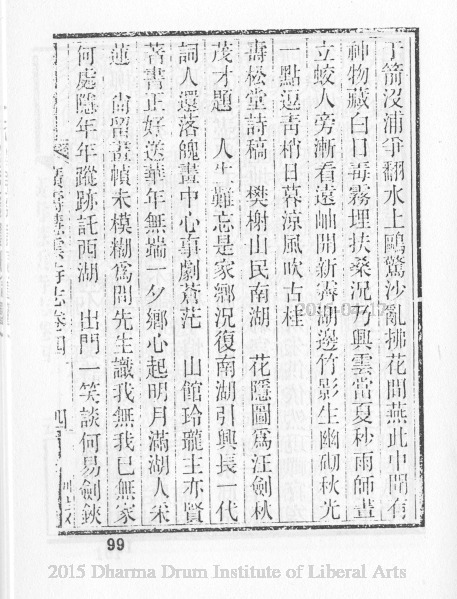 于箭沒浦爭翻水上鷗驚沙亂拂花間燕此中聞有
神物藏白日毒霧埋扶桑況乃興雲當夏秒雨師晝
立蛟人旁漸看遠岫開新霽湖邊竹影生幽砌秋光
一點逗靑梢日暮涼風吹古桂
壽松堂詩稿 樊榭山民南湖 花隱圖爲汪劍秋
茂才題 人生難忘是家鄉況復南湖引興長一代
詞人還落魄畫中心事劇蒼茫 山館玲瓏主亦賢
著書正好送華年無端一夕鄉心起明月滿湖人采
蓮 尙留畫幀未模糊爲問先生識我無我已無家
何處隱年年蹤跡託西湖 出門一笑談何易劍鋏
廣壽慧雲寺志卷四 四
99
2015 Dharma Drum Institute of Liberal Arts